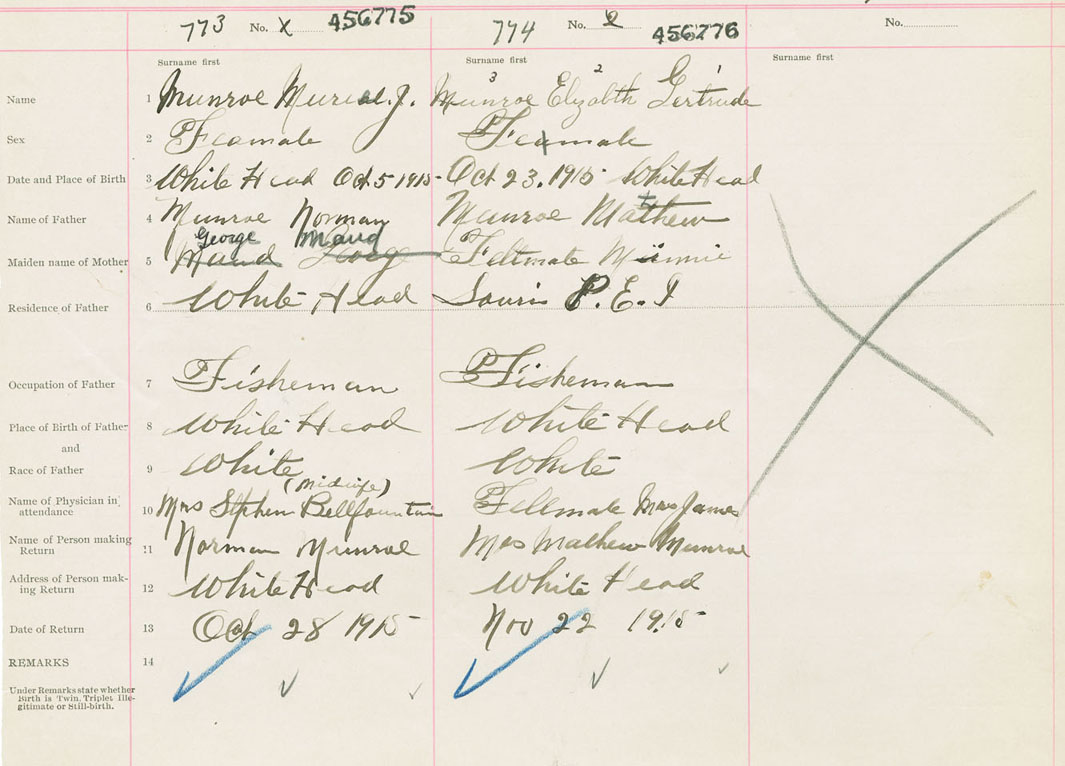 773 No. X 456775 774 No. 2 456776 No.
Surname first Surname first Surname first
Name 1 Munroe Muriel. J. Munroe Elizabth Gertrude
3 2 1
Sex 2 Feamale Feamale
Date and Place of Birth 3 White Head Oct 5 1915 Oct 23, 1915 White Head
Name of Father 4 Munroe Norman Munroe Mathew
George Maud
Maiden name of Mother 5 Maud Feltmate Minnie
Residence of Father 6 White Head Souris P.E.I
Occupation of Father 7 Fisheman Fisheman
Place of Birth of Father 8 White Head White Head
and
Race of Father 9 White White
(Midwife)
Name of Physician in attendance 10 Mrs Stphen Bellfountain Feltmate Mrs James
Name of Person making Return 11 Norman Munroe Mrs Mathew Munroe
Address of Person making Return 12 White Head White Head
Date of Return 13 Oct 28 1915 Nov 22 1915
REMARKS 14
Under Remarks state whether
Birth is Twin, Triplet Ille-
gitimate or Still-birth.